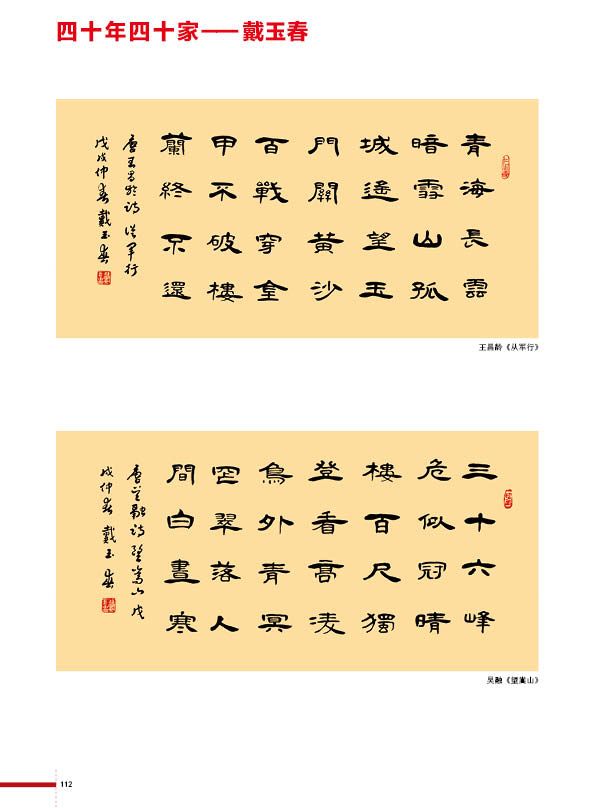 四十年四十家——戴玉春
青海長雲
暗雪山孤
城遙望玉
門關黃沙
百戰穿金
甲不破樓
蘭終不還
唐王昌齡詩從軍行
戊戌仲春戴玉春
王昌龄《从军行》
三十六峰
危似冠晴
樓百尺獨
登看高淩
鳥外青冥
窄翠落人
間白晝寒
唐吳融詩望嵩山戊
戌仲春戴玉春
吴融《望嵩山》
112